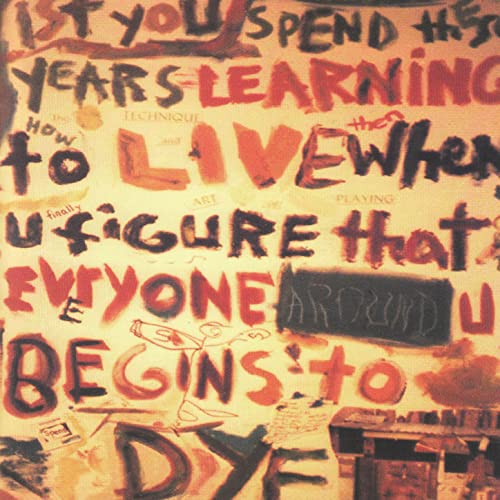 IST YOU SPEND these
YEARS LEARNING
The TECHNIQUE then
HOW and
to LIVE WHEN
finally ART OF PLAYING
U FIGURE that
EVERYONE AROUND U
E
BEGINS to
DYE